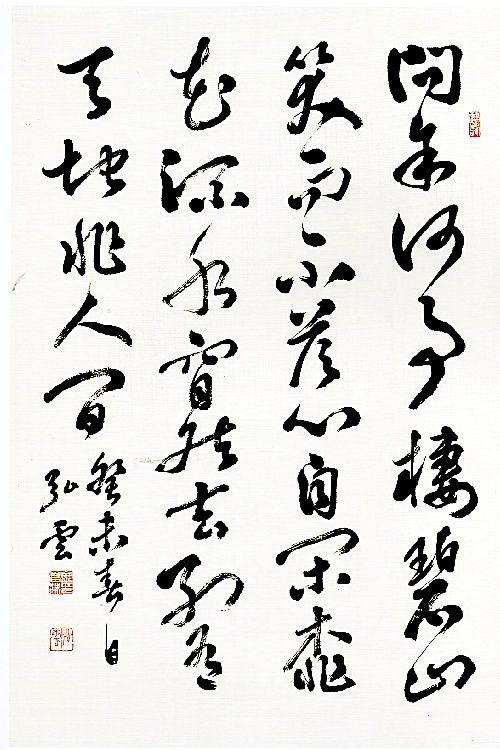 問余何事棲碧山
笑而不答心自閑桃
花流水窅然去別有
天地非人間
癸未春日
弘雲